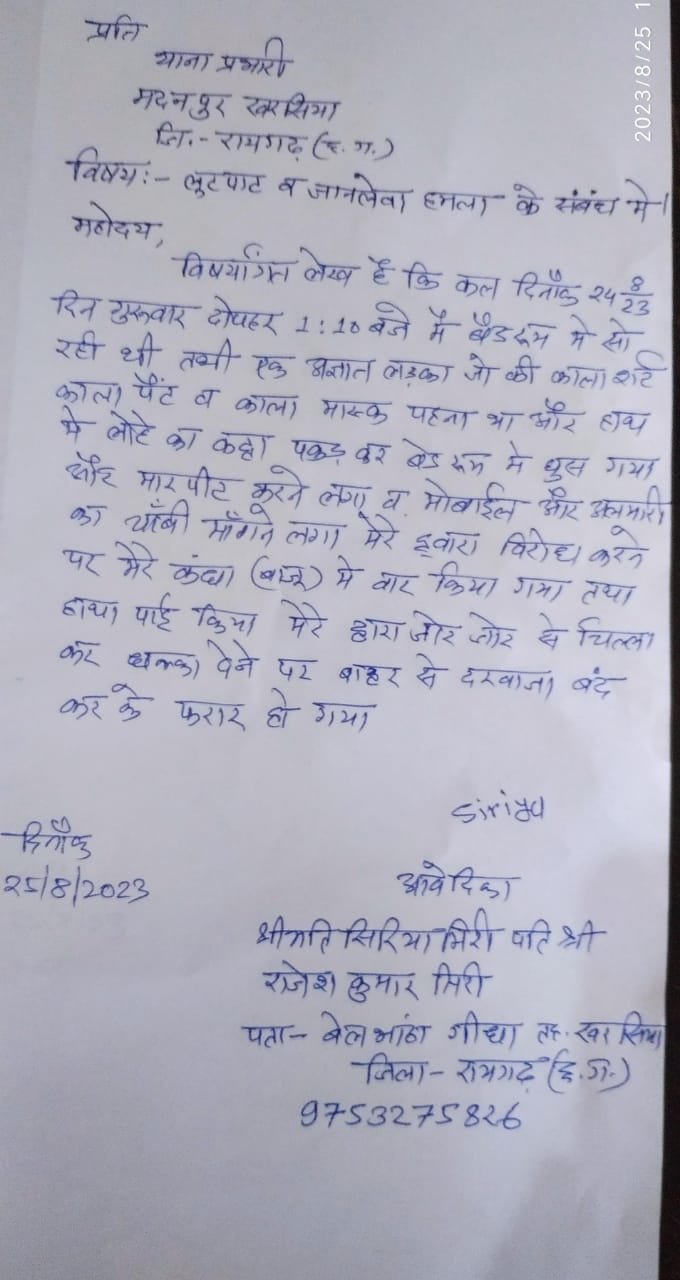 2023/8/25 1
प्रति
थाना प्रभारी
मदनपुर खरसिया
जि.- रायगढ़ (छ.ग.)
विषय:- लुटपाट व जानलेवा हमला के संबंध मे।
महोदय,
विषयांगित लेख है कि कल दिनाँक 24 8/23
दिन गुरूवार दोपहर 1:10 बजे मै बैडरूम मे सो
रही थी तभी एक अज्ञात लड़का जो की काला शर्ट
काला पैंट व काला मास्क पहना था और हाथ
मे लोहे का कट्टा पकड़ कर बेडरूम मे घुस गया
और मारपीट करने लगा व मोबाईल और अलमारी
का चाँबी माँगने लगा मेरे द्वारा विरोध करने
पर मेरे कंधा (बाजू) मे वार किया गया तथा
हाथा पाई किया मेरे द्वारा जोर जोर से चिल्ला
कर धक्का देने पर बाहर से दरवाजा बंद
कर के फरार हो गया
Siriya
दिनाँक
25/8/2023
आवेदिका
श्रीमति सिरिया मिरी पति श्री
राजेश कुमार मिरी
पता- बेलभांठा गीधा तह. खरसिया
जिला- रायगढ़ (छ.ग.)
9753275826